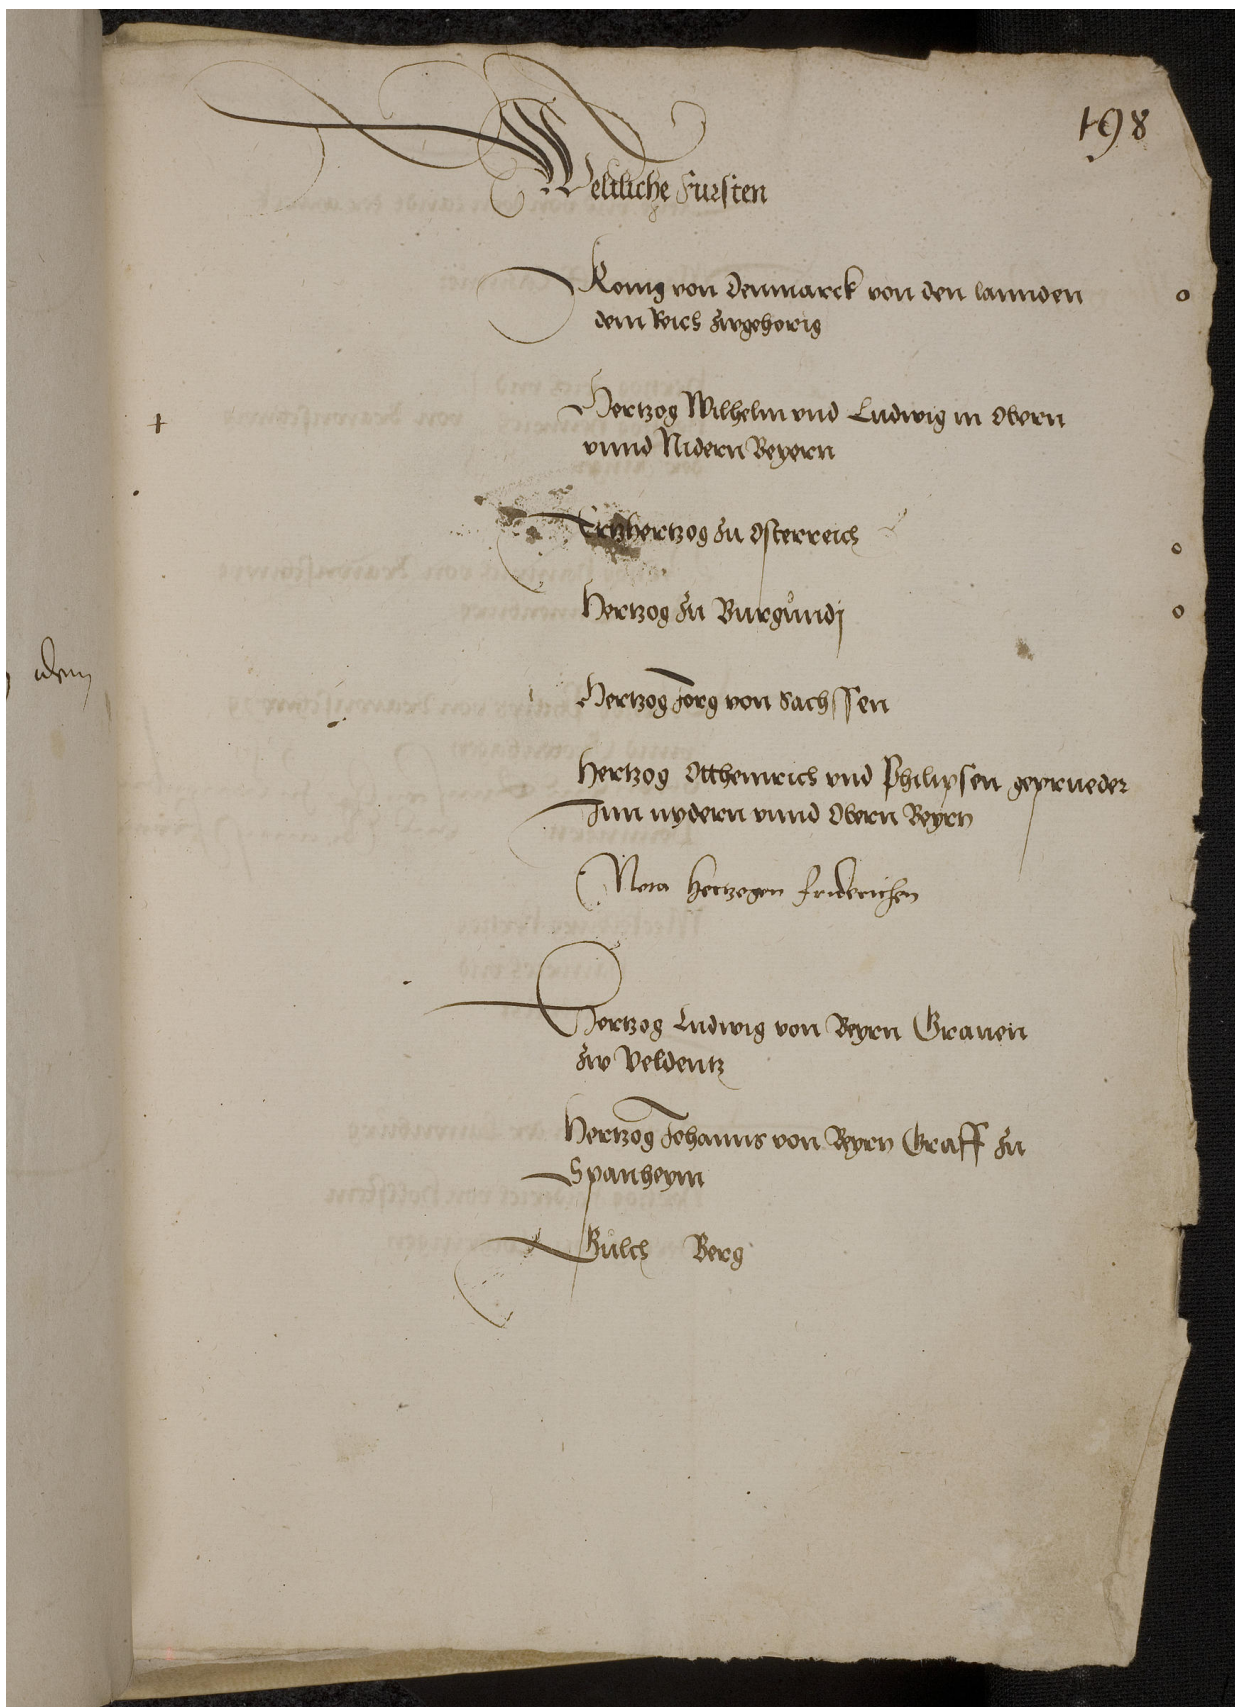 198
Weltliche Fursten
Konig von Denmarck von den lannden
dem Reich zwgehorig
Hertzog Wilhelm vnd Ludwig in Obern
vnnd Nidern Beyern
Ertzhertzog zu Osterreich
Hertzog zu Burgundj
Hertzog Jorg von Sachssen
Hertzog Ottheinrich vnd Philipsen geprueder
Inn nydern vnnd Obern Beyrn
Nota Hertzogen Friderichen
Hertzog Ludwig von Beyrn Grauen
zw Veldentz
Hertzog Johanns von Beyrn Graff zu
Spanheym
Gulch Berg